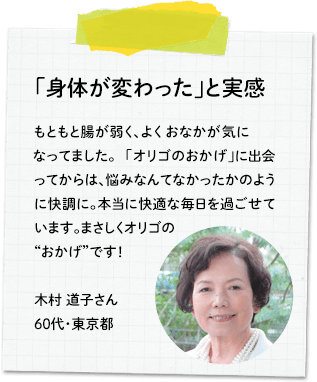 「身体が変わった」と実感
もともと腸が弱く、よくおなかが気に
なってました。「オリゴのおかげ」に出会
ってからは、悩みなんてなかったかのよう
に快調に。本当に快適な毎日を過ごせて
います。まさしくオリゴの
“おかげ”です！
木村 道子さん
60代・東京都